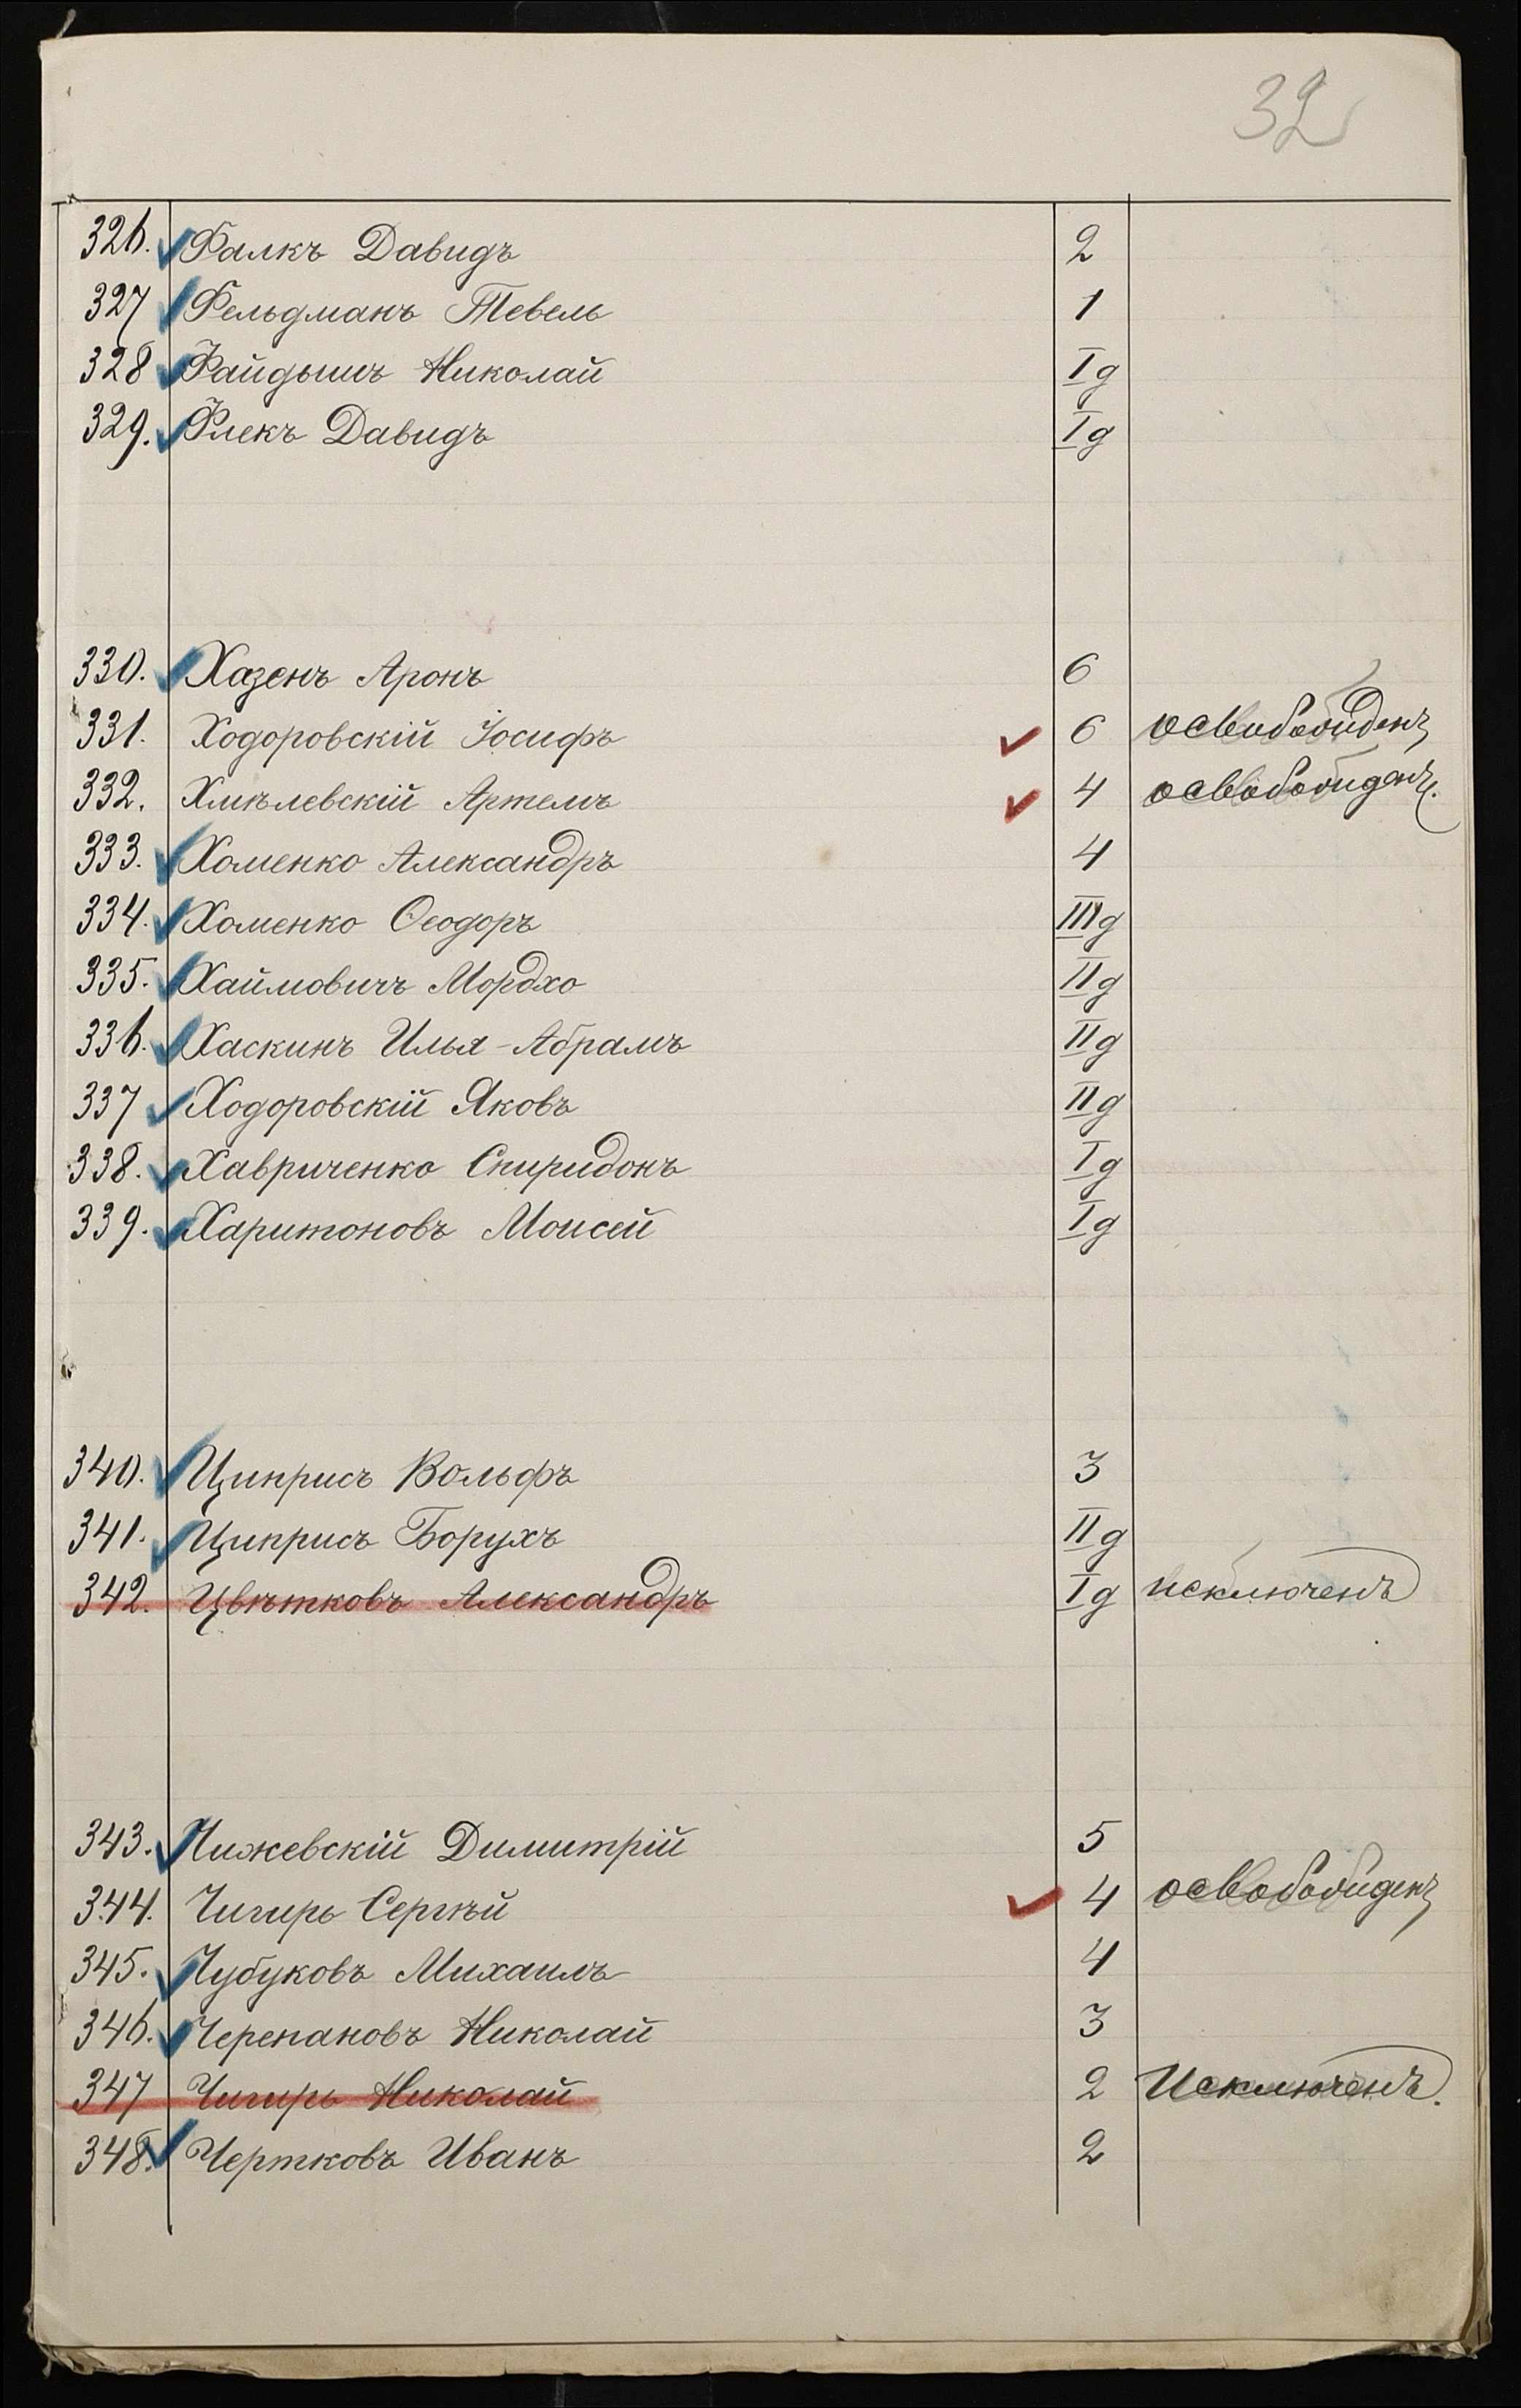 32
326. Фалкъ Давидъ 2
327 Фельдманъ Тевель 1
328 Файдышъ Николай Iд
329. Флекъ Давидъ Iд
330. Хазенъ Аронъ 6
331. Ходоровскій Іосифъ 6 освобожденъ
332. Хмѣлевскій Артемъ 4 освобожденъ.
333. Хоменко Александръ 4
334. Хоменко Ѳеодоръ IIIд
335. Хаймовичъ Мордхо IIд
336. Хаскинъ Илья-Абрамъ IIд
337 Ходоровскій Яковъ IIд
338. Хавриченко Спиридонъ Iд
339. Харитоновъ Моисей Iд
340. Циприсъ Вольфъ 3
341. Циприсъ Борухъ IIд
342. Цвѣтковъ Александръ Iд исключенъ
343. Чижевскій Димитрій 5
344. Чигирь Сергѣй 4 освобожденъ
345. Чубуковъ Михаилъ 4
346. Черепановъ Николай 3
347 Чигирь Николай 2 Исключенъ.
348. Чертковъ Иванъ 2